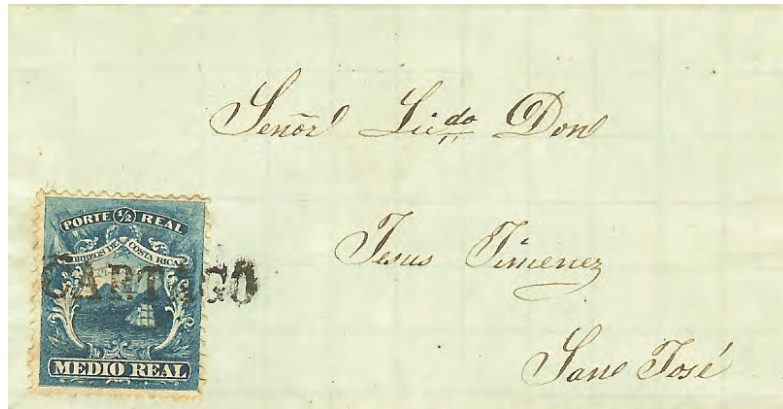 Señor Licdo Don
Jesus Jimenez
San José
PORTE ½ REAL
CORREOS DE COSTA RICA
CARTAGO
MEDIO REAL